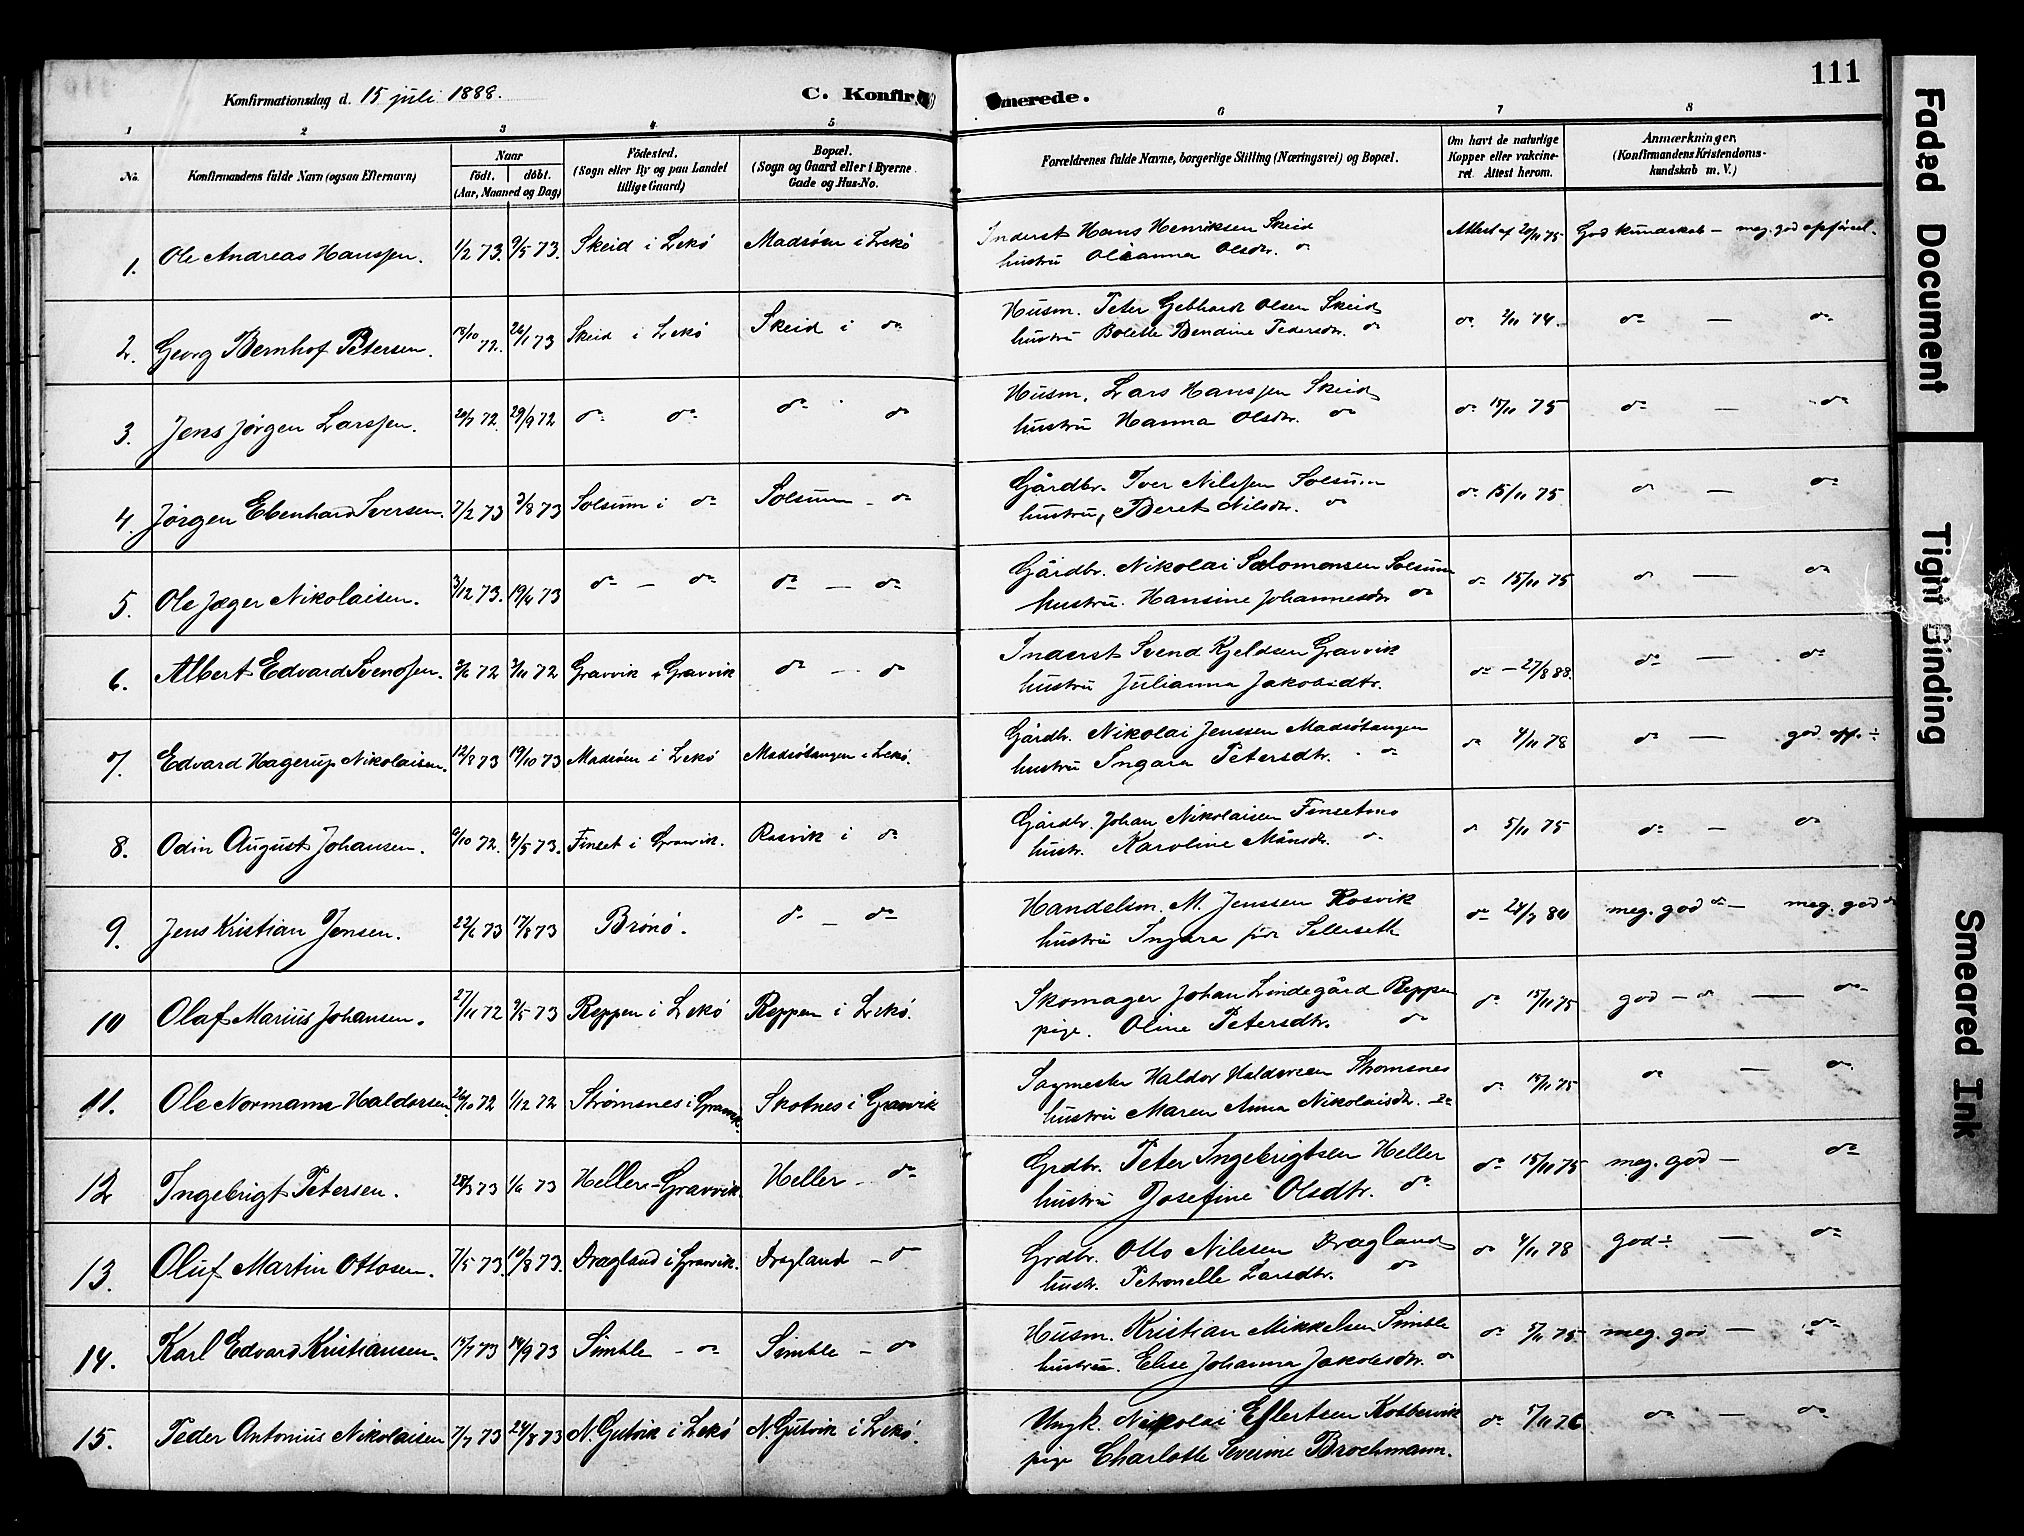 111
Konfirmationsdag d. 15 juli 1888.
C. Konfirmerede.
1 2 3 4 5 6 7 8
No.
Konfirmandens fulde Navn (ogsaa Efternavn)
Naar
födt. döbt.
(Aar, Maaned og Dag)
Födested.
(Sogn eller By og paa Landet
tillige Gaard)
Bopæl.
(Sogn og Gaard eller i Byerne
Gade og Hus-No.
Forældrenes fulde Navne, borgerlige Stilling (Næringsvei) og Bopæl.
Om havt de naturlige
Kopper eller vakcine-
ret. Attest herom.
Anmærkninger,
(Konfirmandens Kristendoms-
kundskab m. V.)
1. Ole Andreas Hanssen. 1/2 73. 9/5 73. Skeid i Lekö Madsöen i Lekö Inderst Hans Henriksen Skeid Attest af 20/11 75 God kundskab - meg. god opförsel.
hustru Olianna Olsdtr. do
2. Georg Bernhof Petersen. 18/10 72. 26/1 73 Skeid i Lekö Skeid i do Husm. Peter Gebhardt Olsen Skeid do 2/11 74. do — do
hustru Bolette Bendine Pedersdtr. do
3. Jens Jørgen Larssen. 20/7 72. 29/9 72 do do do do Husm. Lars Hanssen Skeid do 15/11 75 do — do
hustru Hanna Olsdtr. do
4. Jørgen Ebenhard Iversen. 7/2 73 3/8 73 Solsum i do Solsum - do Gårdbr. Iver Nilssen Solsum do 15/11 75 do — do
hustru, Beret Nilsdtr. do
5. Ole Jæger Nikolaisen. 3/12 73. 19/4 73 do — do do — do Gårdbr. Nikolai Salomonsen Solsum do 15/11 75 do — do
hustru. Hansine Johannesdtr do
6. Albert Edvard Svendsen. 3/6 72 3/11 72 Gravvik i Gravvik do — do Inderst Svend Kjeldsen Gravvik do - 27/8 88. do — do
hustru Julianna Jakobsdtr.
7. Edvard Hagerup Nikolaisen. 12/8 73 19/10 73 Madsöen i Lekö Madsötangen i Lekö. Gårdb. Nikolai Jenssen Madsötangen do 4/11 78 do — god opf. ÷
hustru Ingara Petersdtr. do
8. Odin August Johansen. 6/10 72. 4/5 73. Finset i Gravvik. Rosvik i do Gårdbr. Johan Nikolaisen Finsetmo do 5/11 75 do — do
hustr. Karoline Månsdtr. do
9. Jens Kristian Jensen. 22/6 73 17/8 73 Brönö. do — do Handelsm. M. Jenssen Rosvik do 24/7 80 meg. god do — meg. god do
hustru Ingara för Selleseth
10 Olaf Marius Johansen. 27/11 72 9/5 73 Reppen i Lekö Reppen i Lekö. Skomager Johan Lindegård Reppen do 15/11 75 god - do — do
pige. Oline Petersdtr. do
11. Ole Normann Haldorsen 26/10 72 1/12 72 Strömsnes i Gravvik. Skotnes i Gravvik Sagmester Haldor Haldorsen Strömsnes do 15/11 75 do — do
hustru Maren Anna Nikolaisdtr. do
12 Ingebrigt Petersen. 28/3 73 1/6 73 Heller - Gravvik. Heller - do Grdbr. Peter Ingebrigtsen Heller do 15/11 75 meg. god — do
hustru Josefine Olsdtr. do
13. Oluf Martin Ottosen. 7/5 73. 10/8 73. Dragland i Gravvik. Dragland - do Grdbr. Otto Nilssen Dragland do 4/11 78 god ÷ — do
hustr. Petronelle Larsdtr. do
14. Karl Edvard Kristiansen. 15/7 73 14/9 73 Simble - do Simble - do Husm. Kristian Mikkelsen Simble do 5/11 75 meg. god — do
hustru. Elise Johanna Jakobsdtr. do
15. Peder Antonius Nikolaisen 7/7 73 24/8 73 N. Gutvik i Lekö N. Gutvik i Lekö. Ungk. Nikolai Eflertsen Kolbervik do 5/11 76 do — do
pige Charlotte Severine Brochmann.
Faded Document
Tight Binding
Smeared Ink